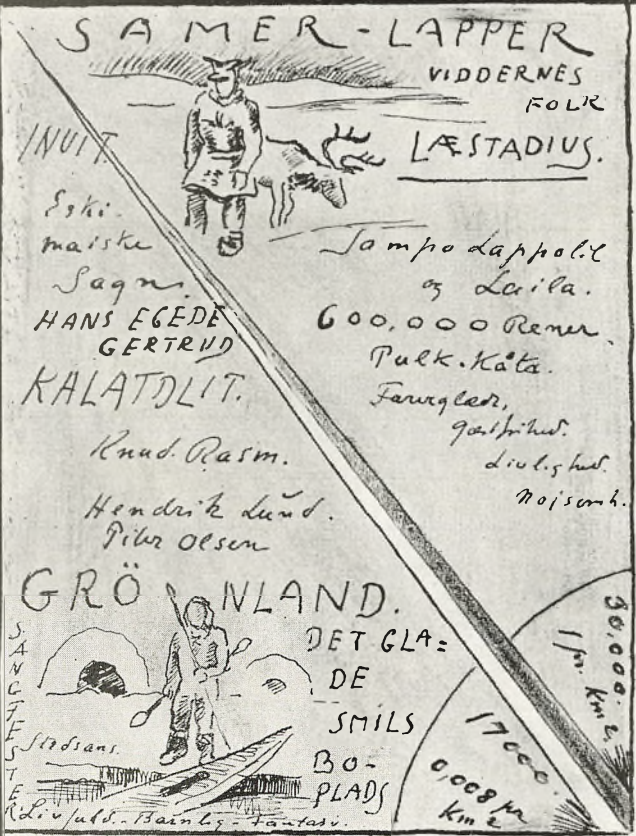 SAMER-LAPPER
VIDDERNES
FOLK
LÆSTADIUS.
Sampo Lappolil
og Laila.
600,000 Rener.
Pulk. Kåta.
Farverglæde,
gæstfrihed.
Livlighed.
Nøjsomh.
30,000.
1 pr. Km 2.
INUIT.
Eski-
moiske
Sagn.
HANS EGEDE
GERTRUD
KALATDLIT.
Knud. Rasm.
Hendrik Lund.
Peter Olsen
GRÖNLAND.
DET GLA=
DE
SMILS
BO-
PLADS
SANGFESTER
Stedsans.
Livfuld.-Barnlig-Fantasi.
17000.
0,008 pr
Km 2